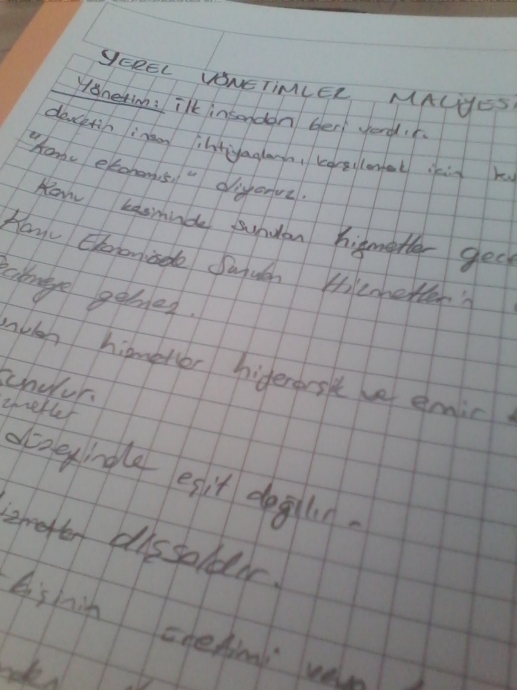 YEREL YÖNETİMLER MALİYESİ
Yönetim: ilk insandan beri vardır.
devletin insan ihtiyaçlarını karşılamak için
"Kamu ekonomisi" diyoruz.
Kamu kesiminde sunulan hizmetler
Kamu Ekonomisde Sunulan Hizmetler'in
gelmez.
hizmetler hiyerarşik ve emir
sunulur.
düzeyinde eşit değildir.
dışsaldır.
üretimi veya